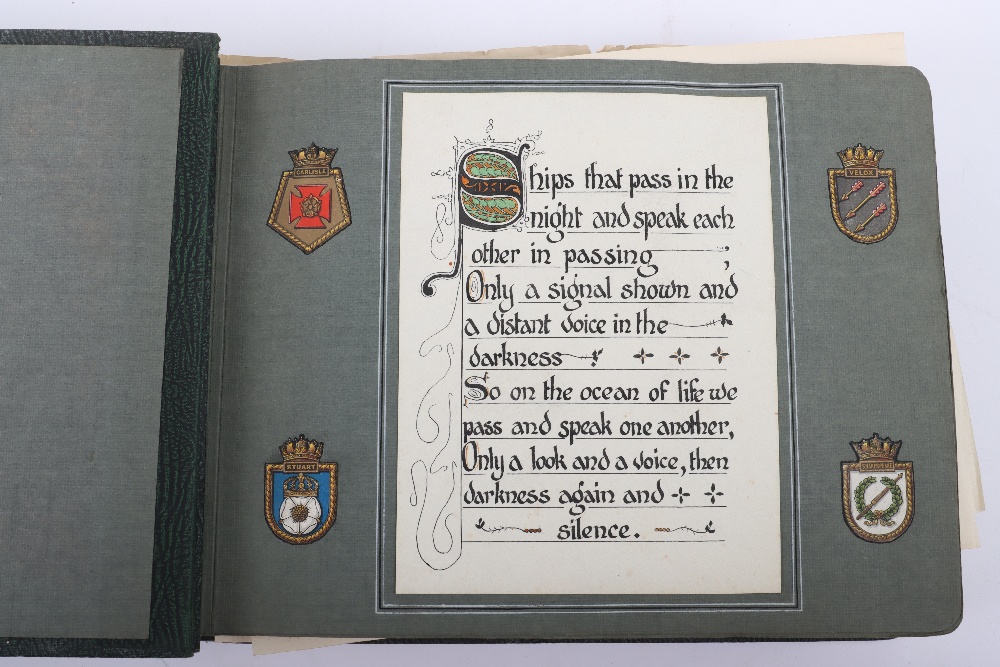 CARLISLE
VELOX
Ships that pass in the
night and speak each
other in passing ;
Only a signal shown and
a distant voice in the
darkness
So on the ocean of life we
pass and speak one another,
Only a look and a voice, then
darkness again and
silence.
STUART
SHAKESPEARE